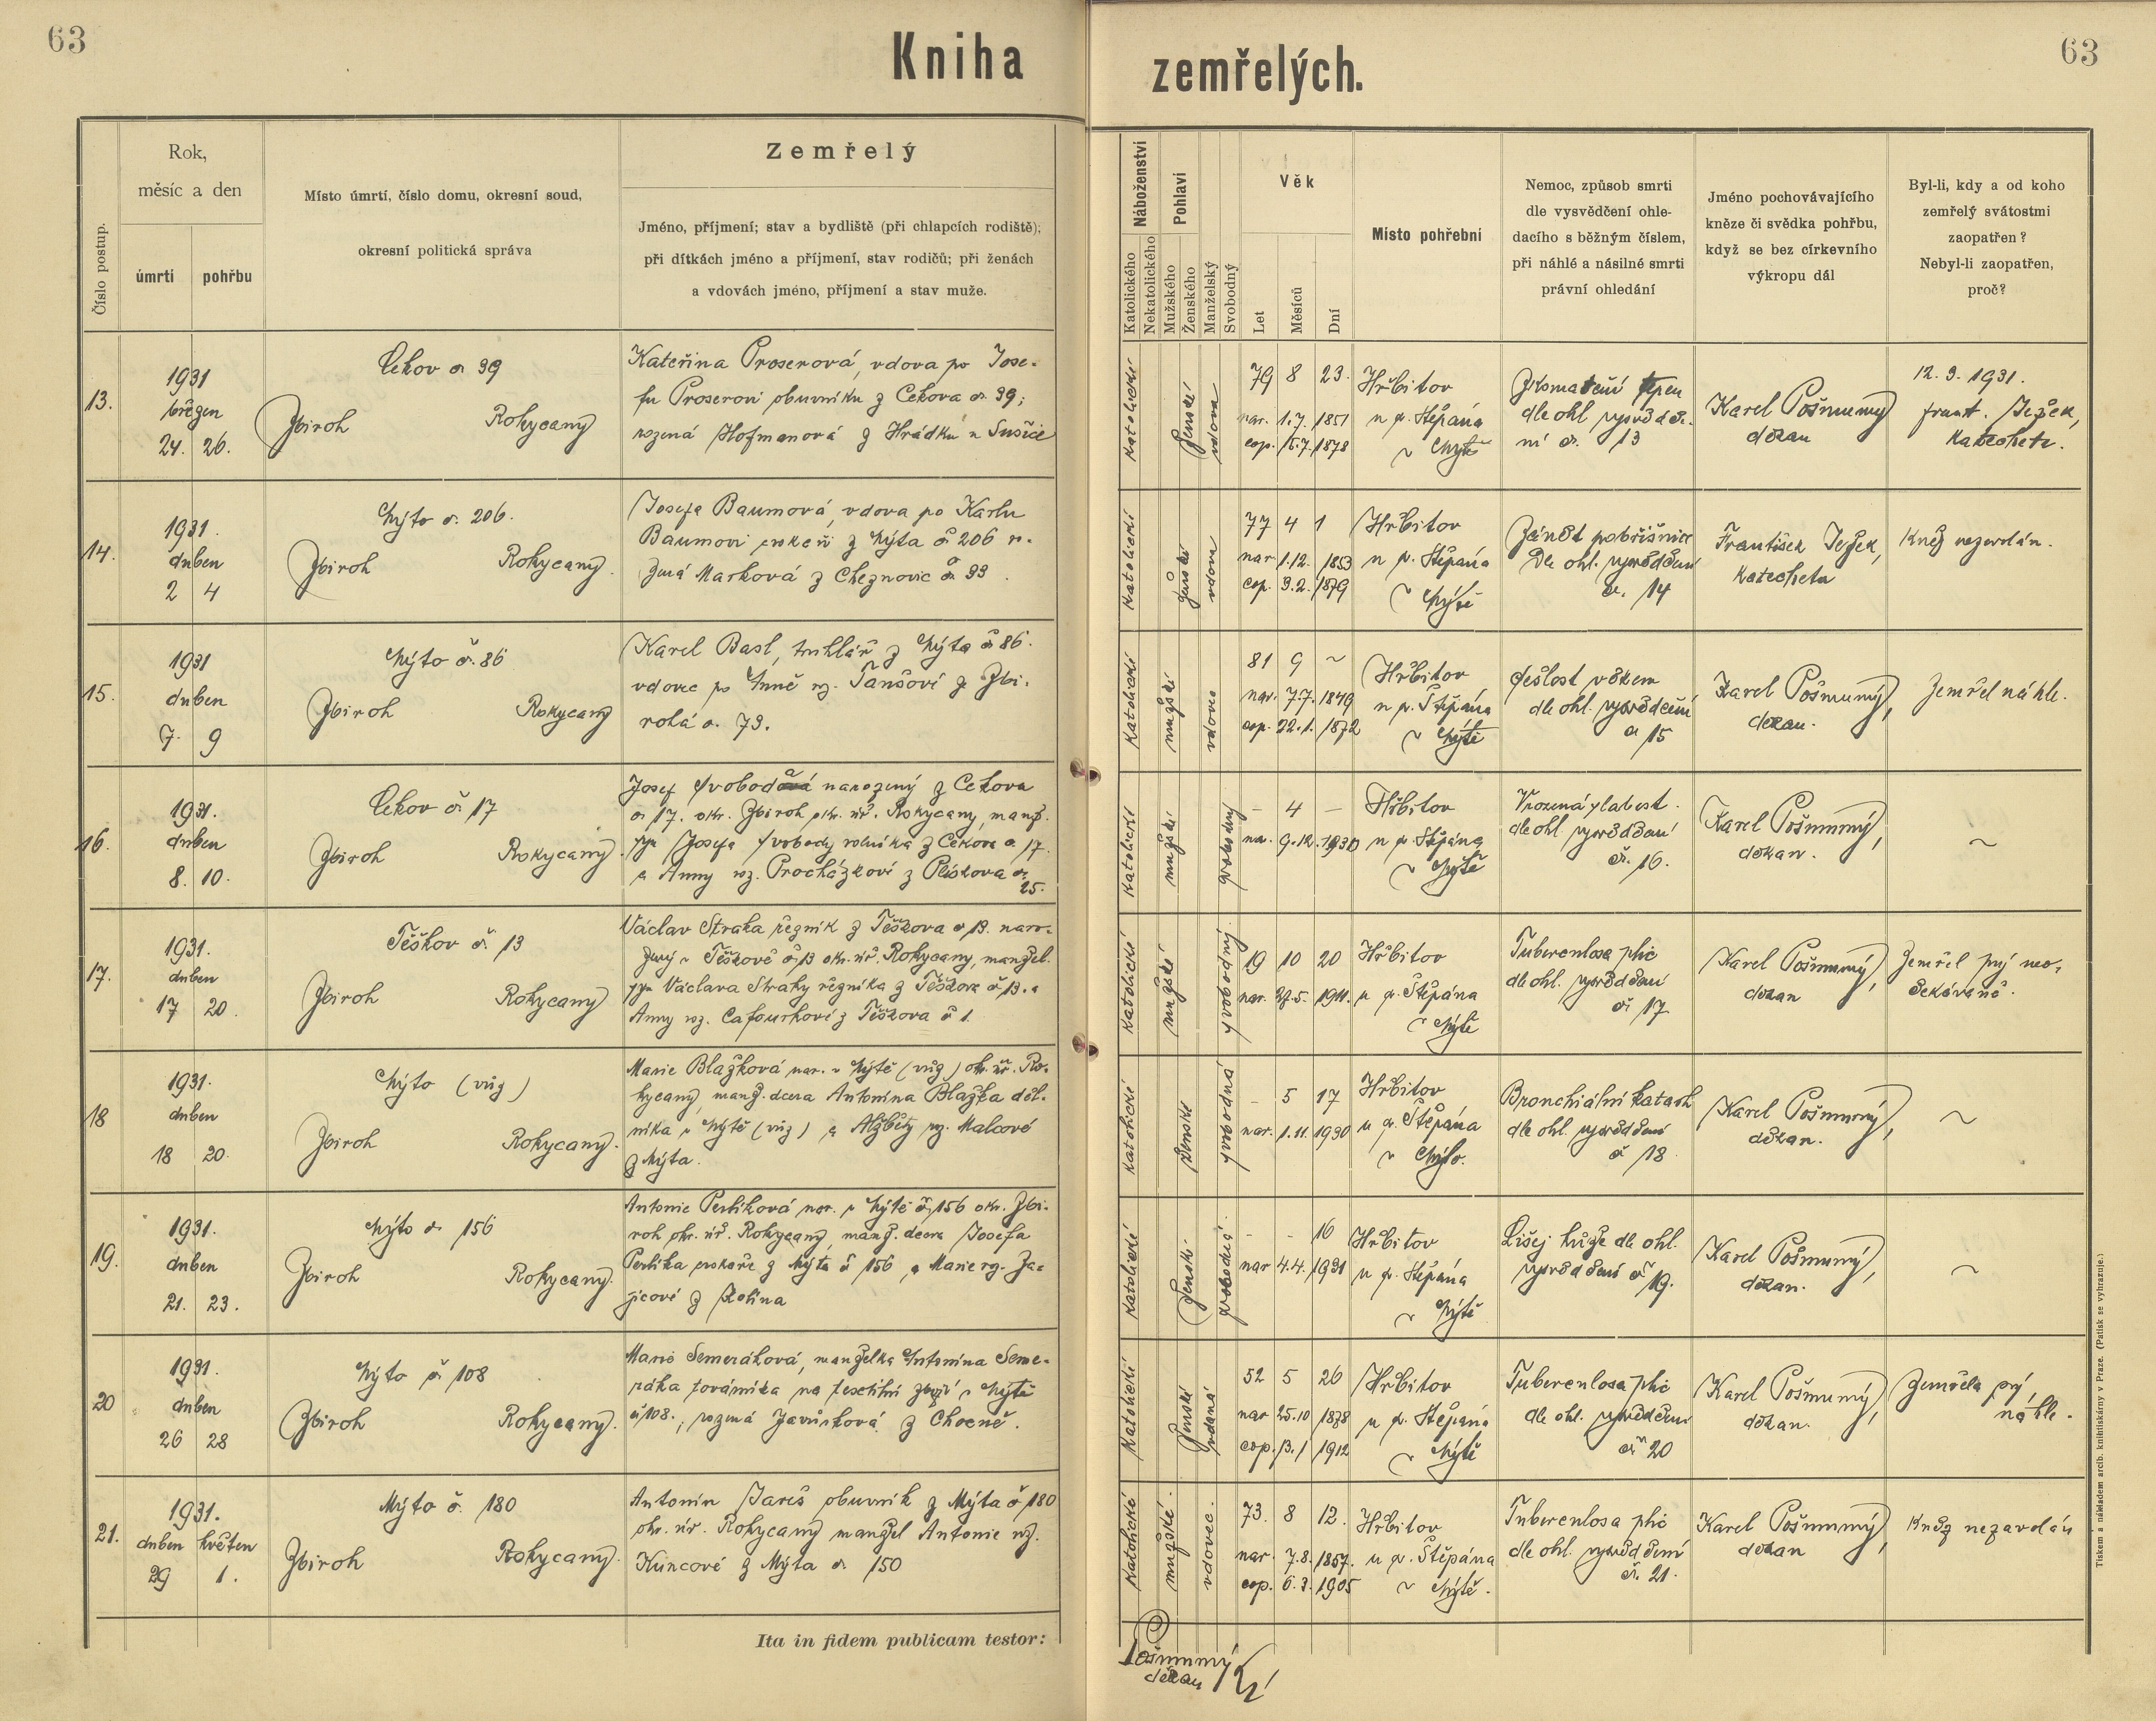 63
Kniha zemřelých.
63
Číslo postup.
Rok,
měsíc a den
úmrtí
pohřbu
Místo úmrtí, číslo domu, okresní soud,
okresní politická správa
Zemřelý
Jméno, příjmení; stav a bydliště (při chlapcích rodiště);
při dítkách jméno a příjmení, stav rodičů; při ženách
a vdovách jméno, příjmení a stav muže.
Náboženství
Katolického
Nekatolického
Pohlaví
Mužského
Ženského
Manželský
Svobodný
Věk
Let
Měsíců
Dní
Místo pohřební
Nemoc, způsob smrti
dle vysvědčení ohle-
dacího s běžným číslem,
při náhlé a násilné smrti
právní ohledání
Jméno pochovávajícího
kněze či svědka pohřbu,
když se bez církevního
výkropu dál
Byl-li, kdy a od koho
zemřelý svátostmi
zaopatřen?
Nebyl-li zaopatřen,
proč?
13.
1931
březen
24. 26.
Cekov č. 39
Zbiroh Rokycany
Kateřina Proserová, vdova po Jose-
fu Proserovi obuvníku z Cekova č. 39;
rozená Hofmanová z Hrádku u Sušice
katolické
ženské
vdova
79 8 23.
nar. 1.7. 1851
cop. 15.7. 1878
Hřbitov
u sv. Štěpána
v Mýtě
dle ohl. vysvědče-
ní č. 13
Karel Pošmurný
děkan
12. 3. 1931.
Frant. Ježek,
katecheta.
14.
1931.
duben
2 4
Mýto č. 206.
Zbiroh Rokycany.
Josefa Baumová, vdova po Karlu
Baumovi cvokaři z Mýta č 206 ro-
zená Marková z Cheznovic č. 33.
katolické
ženské
vdova
77 4 1
nar 1.12. 1853
cop. 3.2. 1879
Hřbitov
u sv. Štěpána
v Mýtě
Zánět pobřišnice
Dle ohl. vysvědčení
č. 14
František Ježek,
katecheta
Kněz nezavolán.
15.
1931
duben
7. 9
Mýto č. 86
Zbiroh Rokycany
Karel Basl, truhlář z Mýta č 86.
vdovec po Anně roz. Tanšové ze Zbi-
roha č. 73.
katolické
mužské
vdovec
81 9 ~
nar. 7.7. 1849
cop. 22.1. 1872
Hřbitov
u sv. Štěpána
v Mýtě
sešlost věkem
dle ohl. vysvědčení
č 15
Karel Pošmurný,
děkan.
Zemřel náhle.
16.
1931.
duben
8. 10.
Cekov č. 17
Zbiroh Rokycany.
Josef Svoboda narozený z Cekova
č. 17. okr. Zbiroh okr. úř. Rokycany, manž.
syn Josefa Svobody rolníka z Cekova č. 17.
a Anny roz. Procházkové z Plískova č.
25.
katolické
mužské
svobodný
- 4 -
nar. 9.12. 1930
Hřbitov
u sv. Štěpána
v Mýtě
Vrozená slabost.
dle ohl vysvědčení
č. 16.
Karel Pošmurný,
děkan.
~
17.
1931.
duben
17 20.
Těškov č. 13
Zbiroh Rokycany
Václav Straka řezník z Těškova č 13. naro-
zený v Těškově č 13 okr. úř. Rokycany, manžel.
syn Václava Straky řezníka z Těškova č 13. a
Anny roz. Cafourkové z Těškova č 1.
katolické
mužské
svobodný.
19 10 20
nar. 27.5. 1911.
Hřbitov
u sv. Štěpána
v Mýtě
Tuberculosa plic
dle ohl. vysvědčení
č. 17
Karel Pošmurný,
děkan
Zemřel prý neo-
čekávaně.
18
1931.
duben
18 20.
Mýto (vůz)
Zbiroh Rokycany.
Marie Blažková nar. v Mýtě (vůz) okr. úř. Ro-
kycany, manž. dcera Antonína Blažka děl-
níka v Mýtě (vůz) a Alžběty roz. Malcové
z Mýta.
katolické
ženské
svobodná
- 5 17
nar. 1.11. 1930
Hřbitov
u sv. Štěpána
v Mýtě.
Bronchiální katarh
dle ohl. vysvědčení
č 18
Karel Pošmurný,
děkan.
~
19.
1931.
duben
21. 23.
Mýto č. 156
Zbiroh Rokycany.
Antonie Perlíková nar. v Mýtě č. 156 okr. Zbi-
roh okr. úř. Rokycany, manž. dcera Josefa
Perlíka cvokaře z Mýta č 156 a Marie roz. Za-
jícové z Kolína
katolické
ženské
svobodná.
- - 16
nar 4.4. 1931
Hřbitov
u sv. Štěpána
v Mýtě
Lišej kůže dle ohl.
vysvědčení č 19.
Karel Pošmurný,
děkan.
~
20
1931.
duben
26 28
Mýto č. 108
Zbiroh Rokycany.
Marie Semeráková, manželka Antonína Seme-
ráka továrníka na textilní zboží v Mýtě
č 108., rozená Javůrková z Chocně.
katolické
ženské
vdaná
52 5 26
nar 25.10 1878
cop. 13.1 1912
Hřbitov
u sv. Štěpána
v Mýtě
Tuberculosa plic
dle ohl. vysvědčení
č. 20
Karel Pošmurný,
děkan.
Zemřela prý,
náhle.
21.
1931.
duben květen
29 1.
Mýto č. 180
Zbiroh Rokycany.
Antonín Jareš obuvník z Mýta č 180
okr. úř. Rokycany manžel Antonie roz.
Kuncové z Mýta č. 150
katolické
mužské.
vdovec.
73. 8 12.
nar. 7.8. 1857.
cop. 6.3. 1905
Hřbitov
u sv. Štěpána
v Mýtě.
Tuberculosa plic
dle ohl. vysvědčení
č. 21.
Karel Pošmurný,
děkan
Kněz nezavolán
Ita in fidem publicam testor:
Pošmurný
děkan
Tiskem a nákladem arcib. knihtiskárny v Praze. (Patisk se vyhrazuje.)